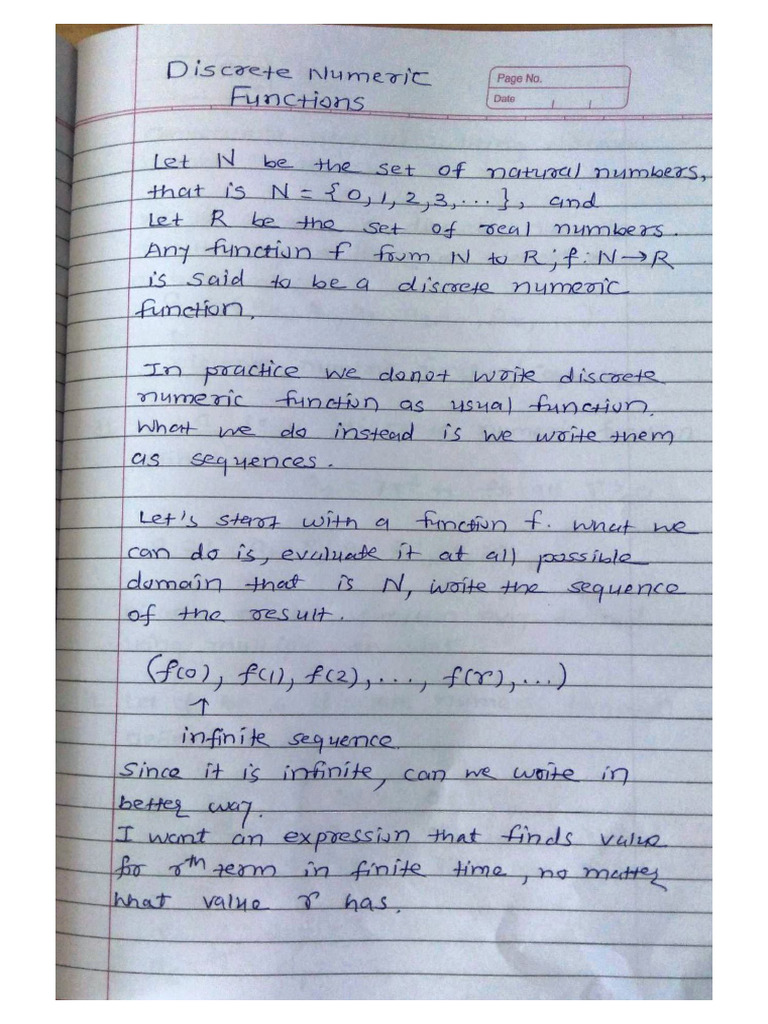 Discrete Numeric
Functions
Page No.
Date
Let N be the set of natural numbers,
that is N = {0, 1, 2, 3, ...}, and
Let R be the set of real numbers.
Any function f from N to R ; f : N → R
is said to be a discrete numeric
function.
In practice we donot write discrete
numeric function as usual function.
What we do instead is we write them
as sequences.
Let's start with a function f. what we
can do is, evaluate it at all possible
domain that is N, write the sequence
of the result.
(f(0), f(1), f(2), ..., f(r), ...)
↑
infinite sequence.
Since it is infinite, can we write in
better way.
I want an expression that finds value
for rth term in finite time, no matter
what value r has.